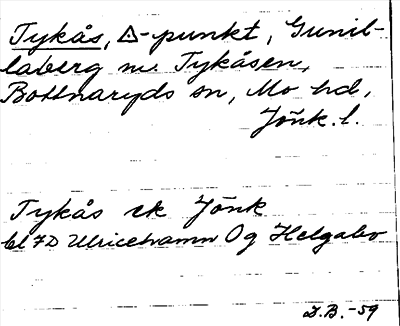 Tykås, △-punkt, Gunil-
laberg nv. Tykåsen,
Bottnaryds sn, Mo hd,
Jönk. l.
Tykås ek Jönk
bl 7D Ulricehamn Og Helgabo
I.B. -59